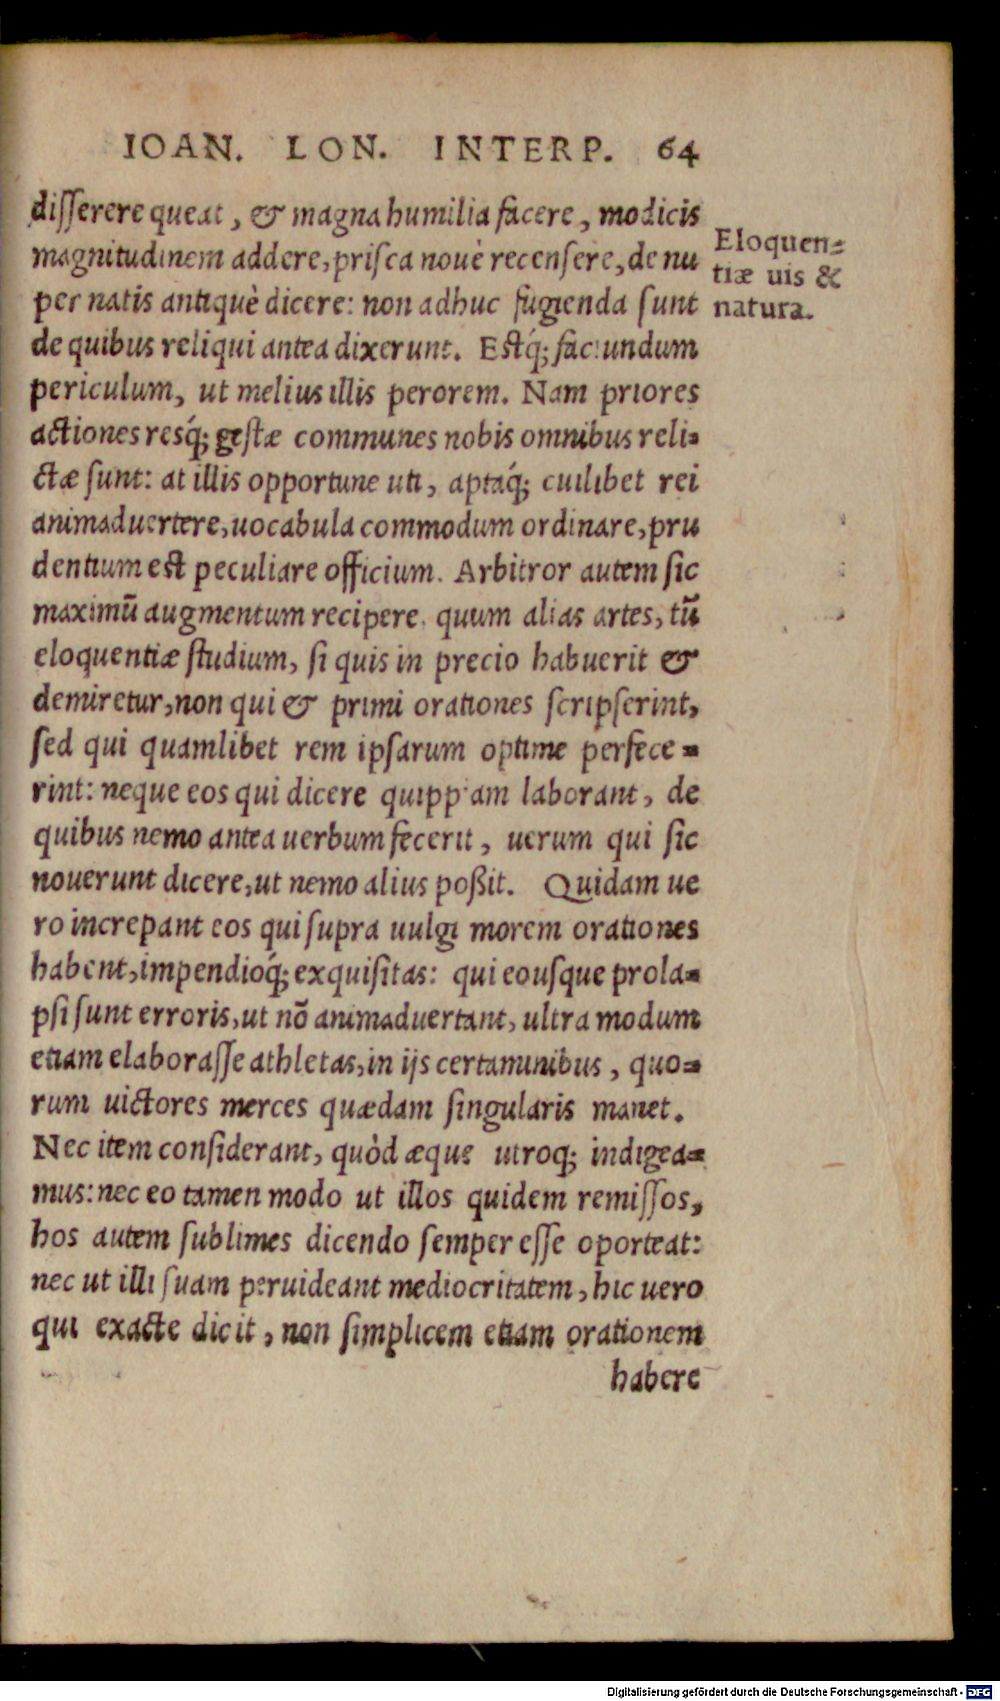 IOAN. LON. INTERP. 64
disſerere queat, & magna humilia facere, modicis
magnitudinem addere, priſca nouè recenſere, de nu
per natis antiquè dicere: non adhuc fugienda ſunt
de quibus reliqui antea dixerunt. Eſtq́; faciundum
periculum, ut melius illis perorem. Nam priores
actiones resq́; geſtæ communes nobis omnibus reli-
ctæ ſunt: at illis opportune uti, aptaq́; cuilibet rei
animaduertere, uocabula commodum ordinare, pru
dentium eſt peculiare officium. Arbitror autem ſic
maximũ augmentum recipere, quum alias artes, tũ
eloquentiæ ſtudium, ſi quis in precio habuerit &
demiretur, non qui & primi orationes ſcripſerint,
ſed qui quamlibet rem ipſarum optime perfece-
rint: neque eos qui dicere quippiam laborant, de
quibus nemo antea uerbum fecerit, uerum qui ſic
nouerunt dicere, ut nemo alius poßit. Quidam ue
ro increpant eos qui ſupra uulgi morem orationes
habent, impendioq́; exquiſitas: qui eouſque prola-
pſi ſunt erroris, ut nõ animaduertant, ultra modum
etiam elaboraſſe athletas, in ijs certaminibus, quo-
rum uictores merces quædam ſingularis manet.
Nec item conſiderant, quòd æque utroq; indigea-
mus: nec eo tamen modo ut illos quidem remiſſos,
hos autem ſublimes dicendo ſemper eſſe oporteat:
nec ut illi ſuam peruideant mediocritatem, hic uero
qui exacte dicit, non ſimplicem etiam orationem
habere
Eloquen-
tiæ uis &
natura.
Digitalisierung gefördert durch die Deutsche Forschungsgemeinschaft - DFG